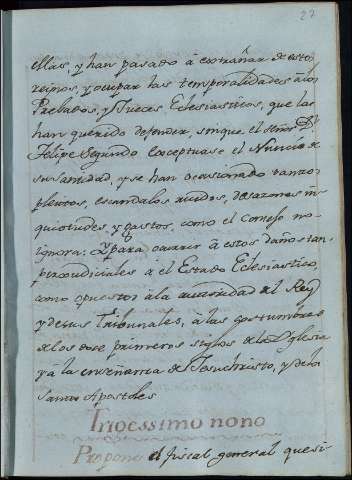 27
ellas, y han pasado á extrañar de estos
reinos, y ocupar las temporalidades á los
Prelados, y Jueces Eclesiasticos, que las
han querido defender, sin que el señor Dn.
Felipe Segundo exceptuase el Nuncio de
su Santidad, y se han ocasionado tantos
pleitos, escandalos, ruidos, desazones in
quietudes, y gastos, como el Consejo no
ignora: Y para ocurrir á estos daños tan
perjudiciales a el Estado Eclesiastico,
como opuestos á la autoridad del Rey
y de sus Tribunales, á las costumbres
de los doce primeros siglos de la Yglesia
y a la enseñanza de Jesuchristo, y de los
Santos Apostoles
Trigessimo nono
Propone el fiscal general que si-